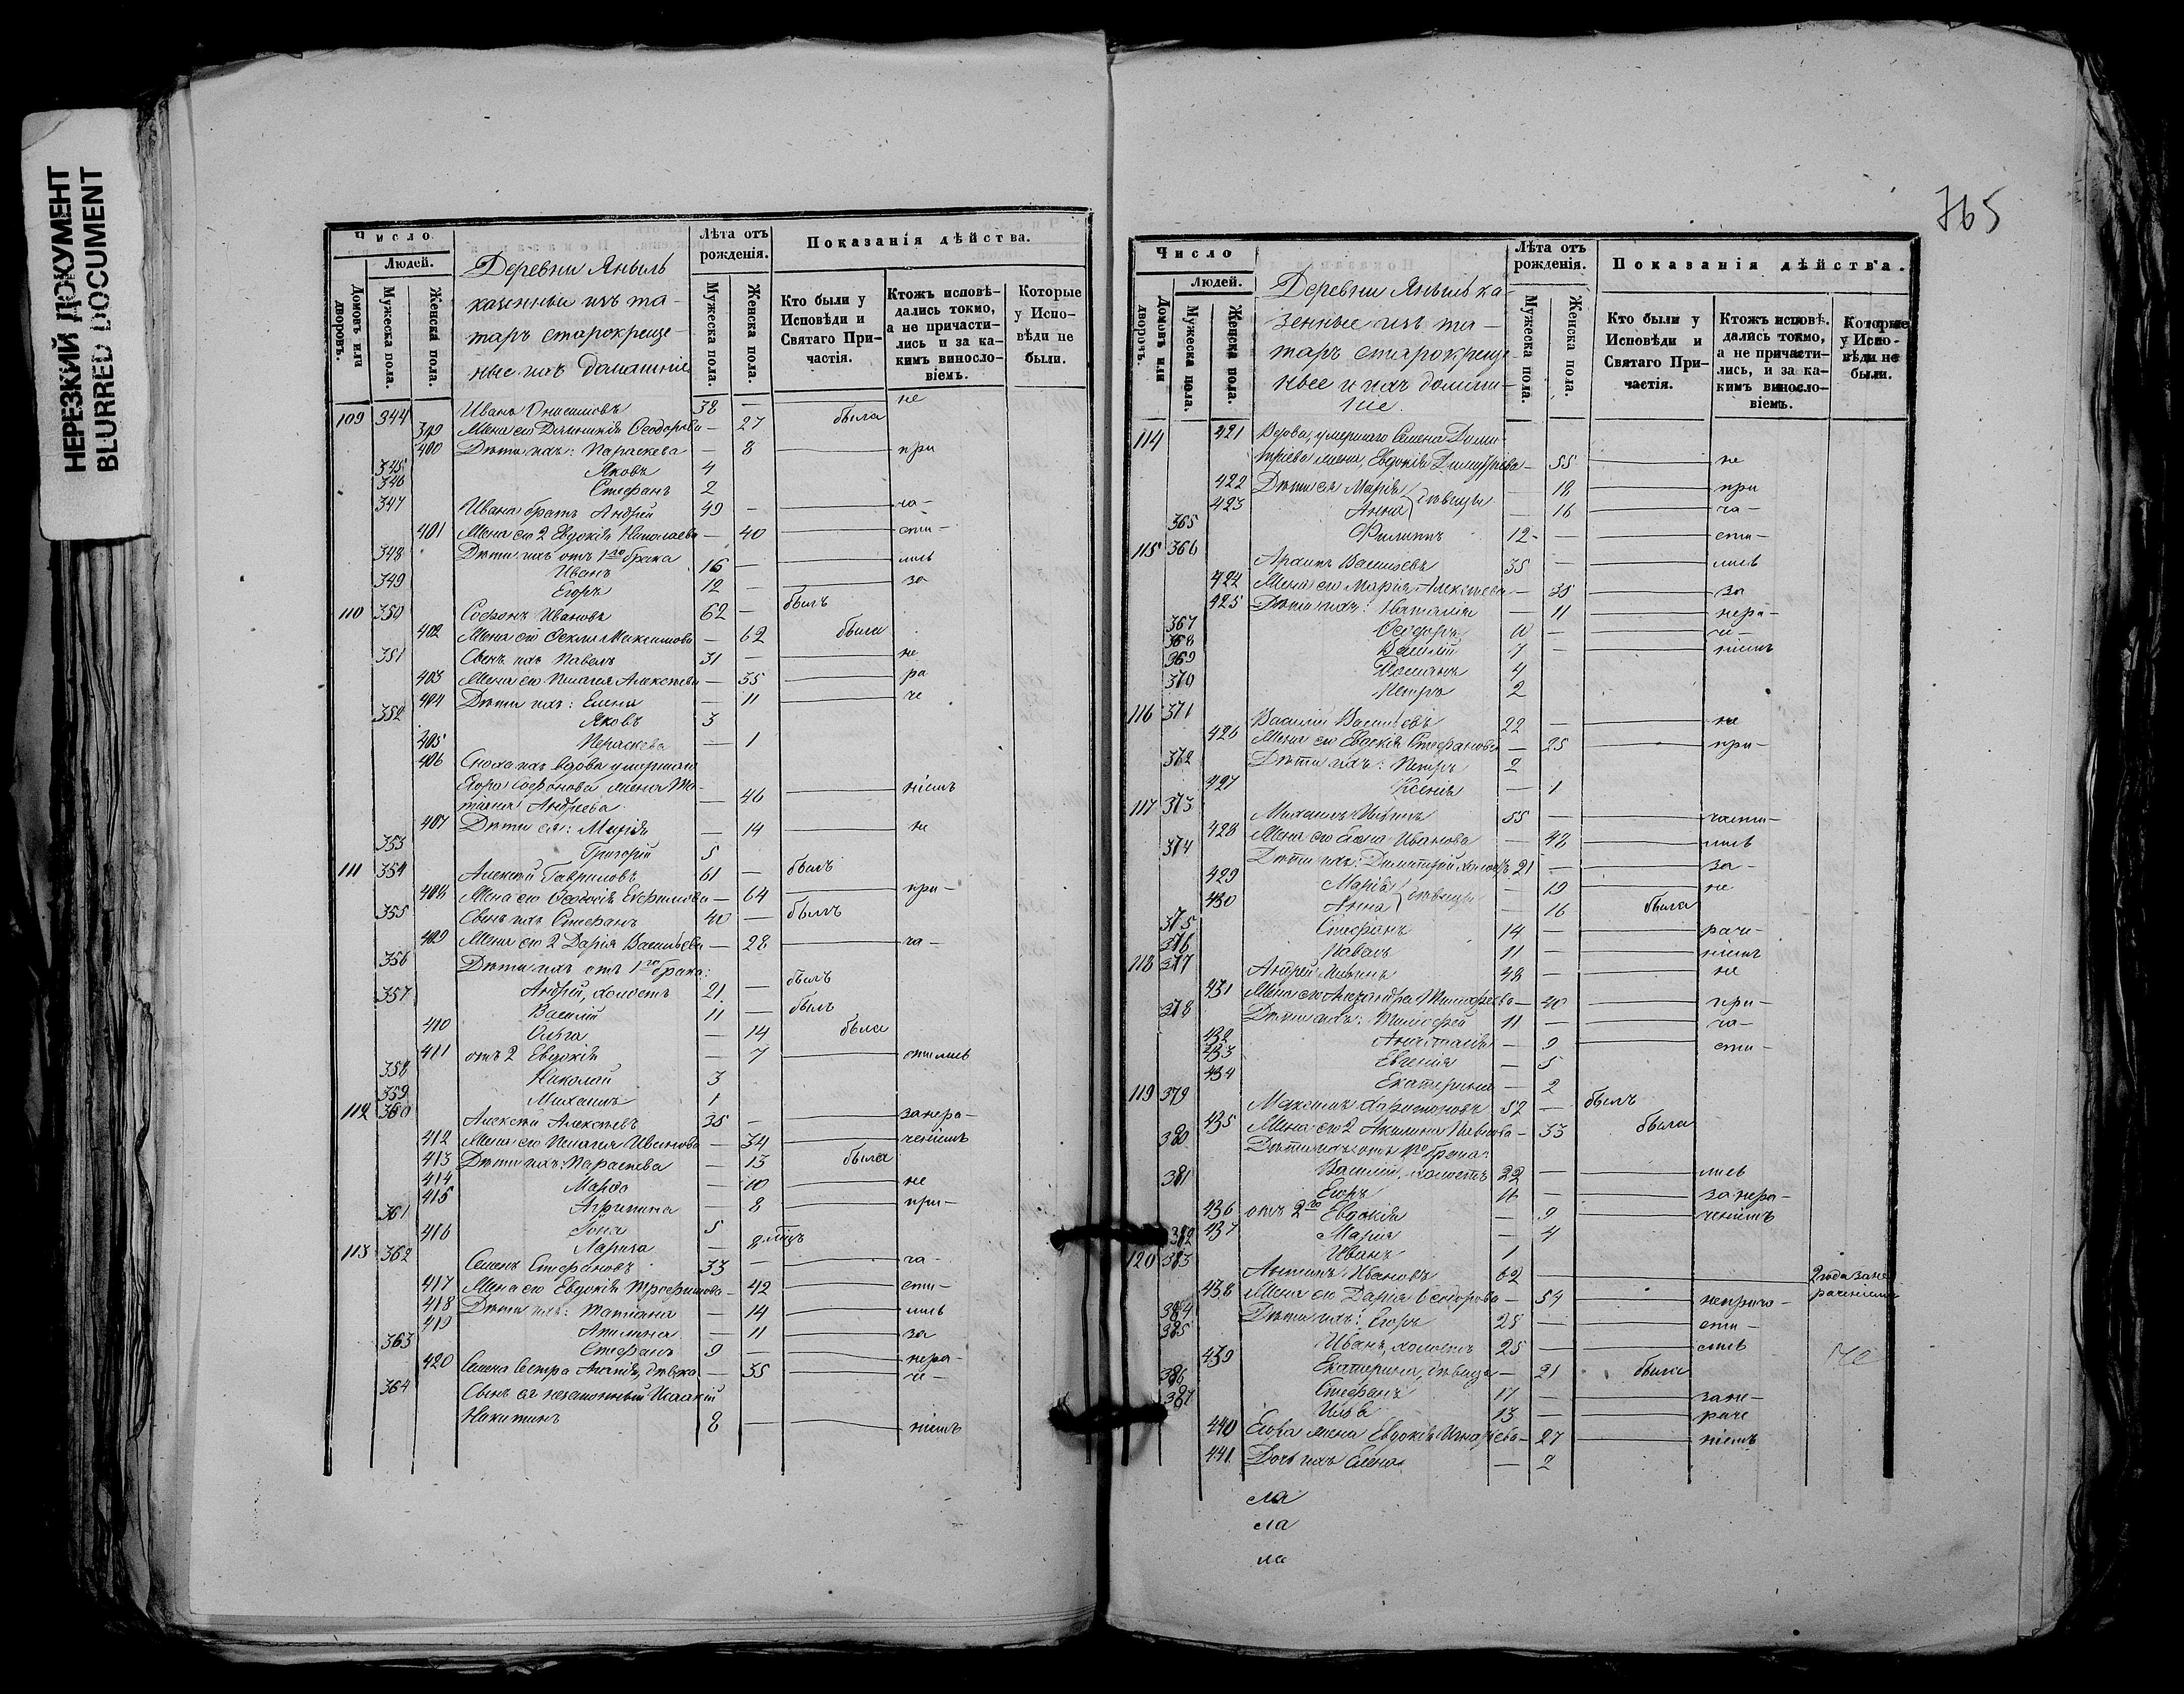 НЕРЕЗКИЙ ДОКУМЕНТ
BLURRED DOCUMENT
Число
Людей.
Домовъ или дворовъ.
Мужеска пола.
Женска пола.
Деревни Яныль
казенные изъ та-
таръ старокреще-
ные ихъ домашніе
Лѣта отъ рожденія.
Мужеска пола.
Женска пола.
Показанія дѣйства.
Кто были у Исповѣди и Святаго Причастія.
Ктожъ исповѣдались токмо, а не причастились и за какимъ винословіемъ.
Которые у Исповѣди не были.
109 344 Иванъ Онисимовъ 38 — не
399 Жена его Домникія Ѳеодорова — 27 была
400 Дѣти ихъ: Параскева — 8 при
345 Яковъ 4
346 Стефанъ 2
347 Ивана братъ Андрей 49 — ча-
401 Жена его 2 Евдокія Николаева — 40 сти-
348 Дѣти ихъ отъ 1го брака
Иванъ 16 — лись
349 Егоръ 12 — за
110 350 Софонъ Ивановъ 62 — былъ
402 Жена его Ѳекла Максимова — 62 была
351 Сынъ ихъ Павелъ 31 — не
403 Жена его Пелагея Алексѣева — 35 ра
404 Дѣти ихъ: Елена — 11 че
352 Яковъ 3
405 Параскева — 1
406 Сноха ихъ вдова умершаго
Егора Софонова жена Та-
тіана Андреева — 46 ніемъ
407 Дѣти ея: Марія — 14 не
353 Григорій 5
111 354 Алексѣй Гавриловъ 61 — былъ
408 Жена его Ѳеодосія Ефримова — 64 при-
355 Сынъ ихъ Стефанъ 40 — былъ
409 Жена его 2 Дарія Васильева — 28 ча-
356 Дѣти ихъ отъ 1го брака:
Андрей, холостъ 21 — былъ
357 Василій 11 — былъ
410 Ольга — 14 была
411 отъ 2 Евдокія — 7 стились
358 Николай 3
359 Михаилъ 1
112 360 Алексѣй Алексѣевъ 35 — занера-
412 Жена его Пелагея Иванова — 34 ченіемъ
413 Дѣти ихъ: Параскева — 13 была
414 Марѳа — 10 не
415 Агрипина — 8 при-
361 Іона 5
416 Лариса —
113 362 Семенъ Стефановъ 33 — ча-
417 Жена его Евдокія Трофимова — 42 сти-
418 Дѣти ихъ: Татіана — 14 лись
419 Акилина — 11 за
363 Стефанъ 9 — нера-
420 Семена сестра дѣвка — 35 че-
364 Сынъ ея незаконный Исаакій
Никитинъ 8 — ніемъ
765
Число
Людей.
Домовъ или дворовъ.
Мужеска пола.
Женска пола.
Деревни Яныль ка-
зенные изъ та-
таръ старокреще-
ные и ихъ домаш-
ніе.
Лѣта отъ рожденія.
Мужеска пола.
Женска пола.
Показанія дѣйства.
Кто были у Исповѣди и Святаго Причастія.
Ктожъ исповѣдались токмо, а не причастились, и за какимъ винословіемъ.
Которые у Исповѣди не были.
114 421 Вдова, умершаго Семена Дими-
тріева жена, Евдокія Димитріева — 55 не
422 Дѣти ея Марія — 18 при
423 Анна } дѣвицы — 16 ча-
365 Филиппъ 12 — сти-
115 366 Архипъ Васильевъ 35 — лись
424 Жена его Марія Алексѣева — 35 за
425 Дѣти ихъ: Наталія — 11 нера-
367 Ѳеодоръ — че-
368 Василій 7 — ніемъ
369 Романъ 4
370 Петръ 2
116 371 Василій Васильевъ 22 — не
426 Жена его Евдокія Стефанова — 25 при-
372 Дѣти ихъ: Петръ 2
427 Ксенія — 1
117 373 Михаилъ 55 — части-
428 Жена его Иванова — 48 лись
374 Дѣти ихъ: Димитрій холостъ 21 — за-
429 Марія — 19 не
430 Анна } дѣвицы — 16 была
375 Стефанъ 14 — раче-
376 Павелъ 11 — ніемъ
118 377 Андрей 48 — не
431 Жена его Александра Тимофеева — 40 при-
378 Дѣти ихъ: Тимофей 11 — ча-
432 Анастасія — 9 сти-
433 Евгенія — 5
434 Екатерина — 2
119 379 Максимъ Харитоновъ 52 — былъ
435 Жена его 2 Акилина Павлова — 33 была
380 Дѣти ихъ отъ 1го брака:
Василій, холостъ 22 — лись
381 Егоръ 11 — за нера-
436 отъ 2го Евдокія — 9 ченіемъ
437 Марія — 4
382 Иванъ 1
120 383 Антипъ Ивановъ 62 — 2 года зане
раченіемъ
438 Жена его Дарія Ѳеодорова — 54 неприча-
384 Дѣти ихъ: Егоръ 28 — сти-
385 Иванъ, холостъ 25 — лись
439 Екатерина, дѣвица — 21 была
386 Стефанъ 17 — зане-
387 Илья 13 — раче
440 Егора жена Евдокія Макарьева — 27 ніемъ
441 Дочь ихъ Елена — 2
ла
ла
ла